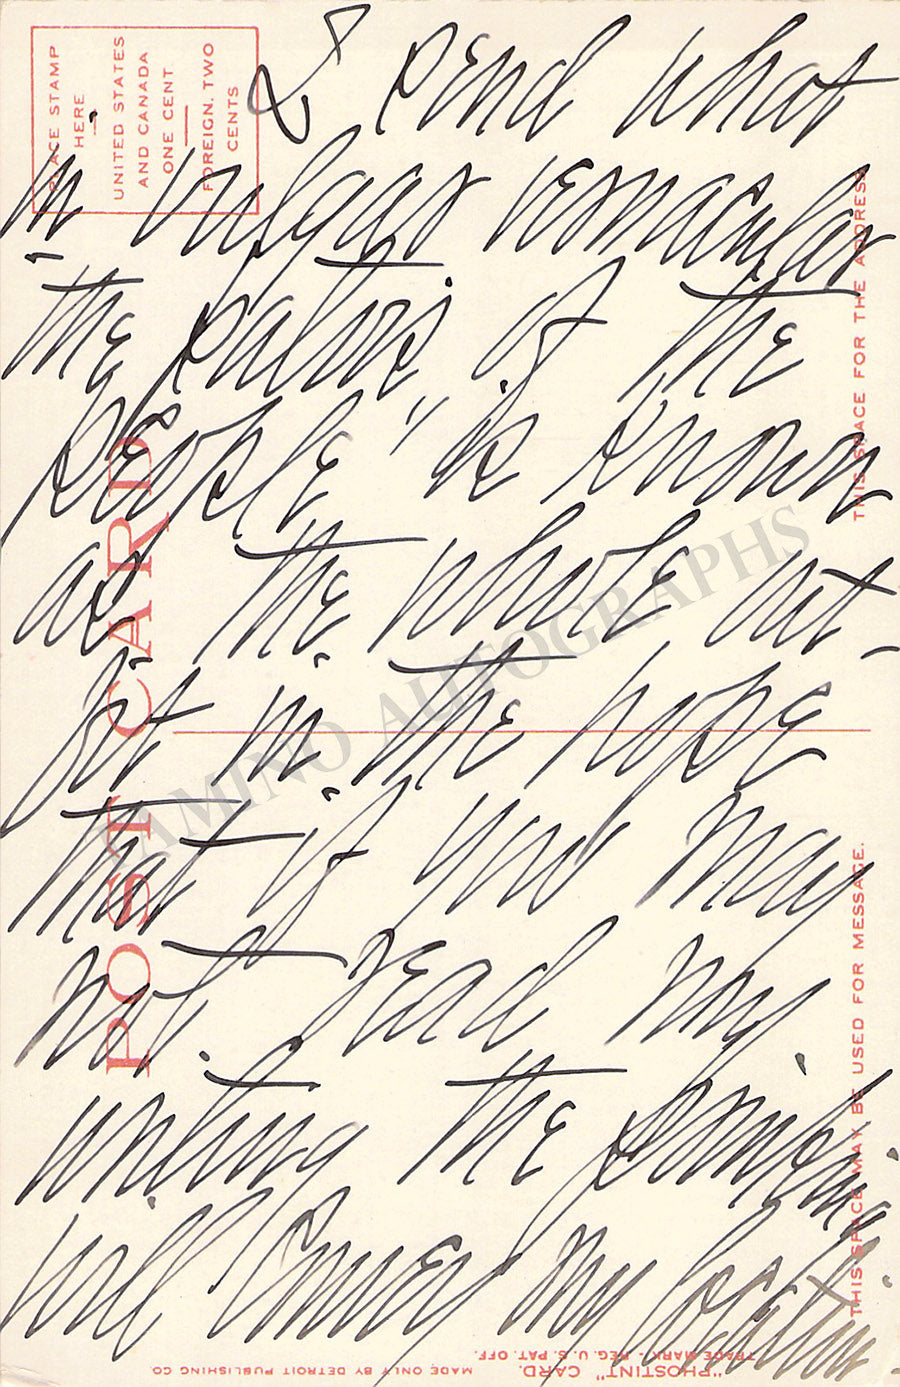 I send what
in vulgar vernacular
the patois of the
people" is known
as the whole out-
fit in the hope
that if you may
not read my
writing the printing
will convey my location
PLACE STAMP
HERE
UNITED STATES
AND CANADA
ONE CENT
FOREIGN, TWO
CENTS
POST CARD
THIS SPACE FOR THE ADDRESS
THIS SPACE MAY BE USED FOR MESSAGE.
"PHOSTINT" CARD.
TRADE MARK - REG. U.S. PAT. OFF.
MADE ONLY BY DETROIT PUBLISHING CO
TAMINO AUTOGRAPHS